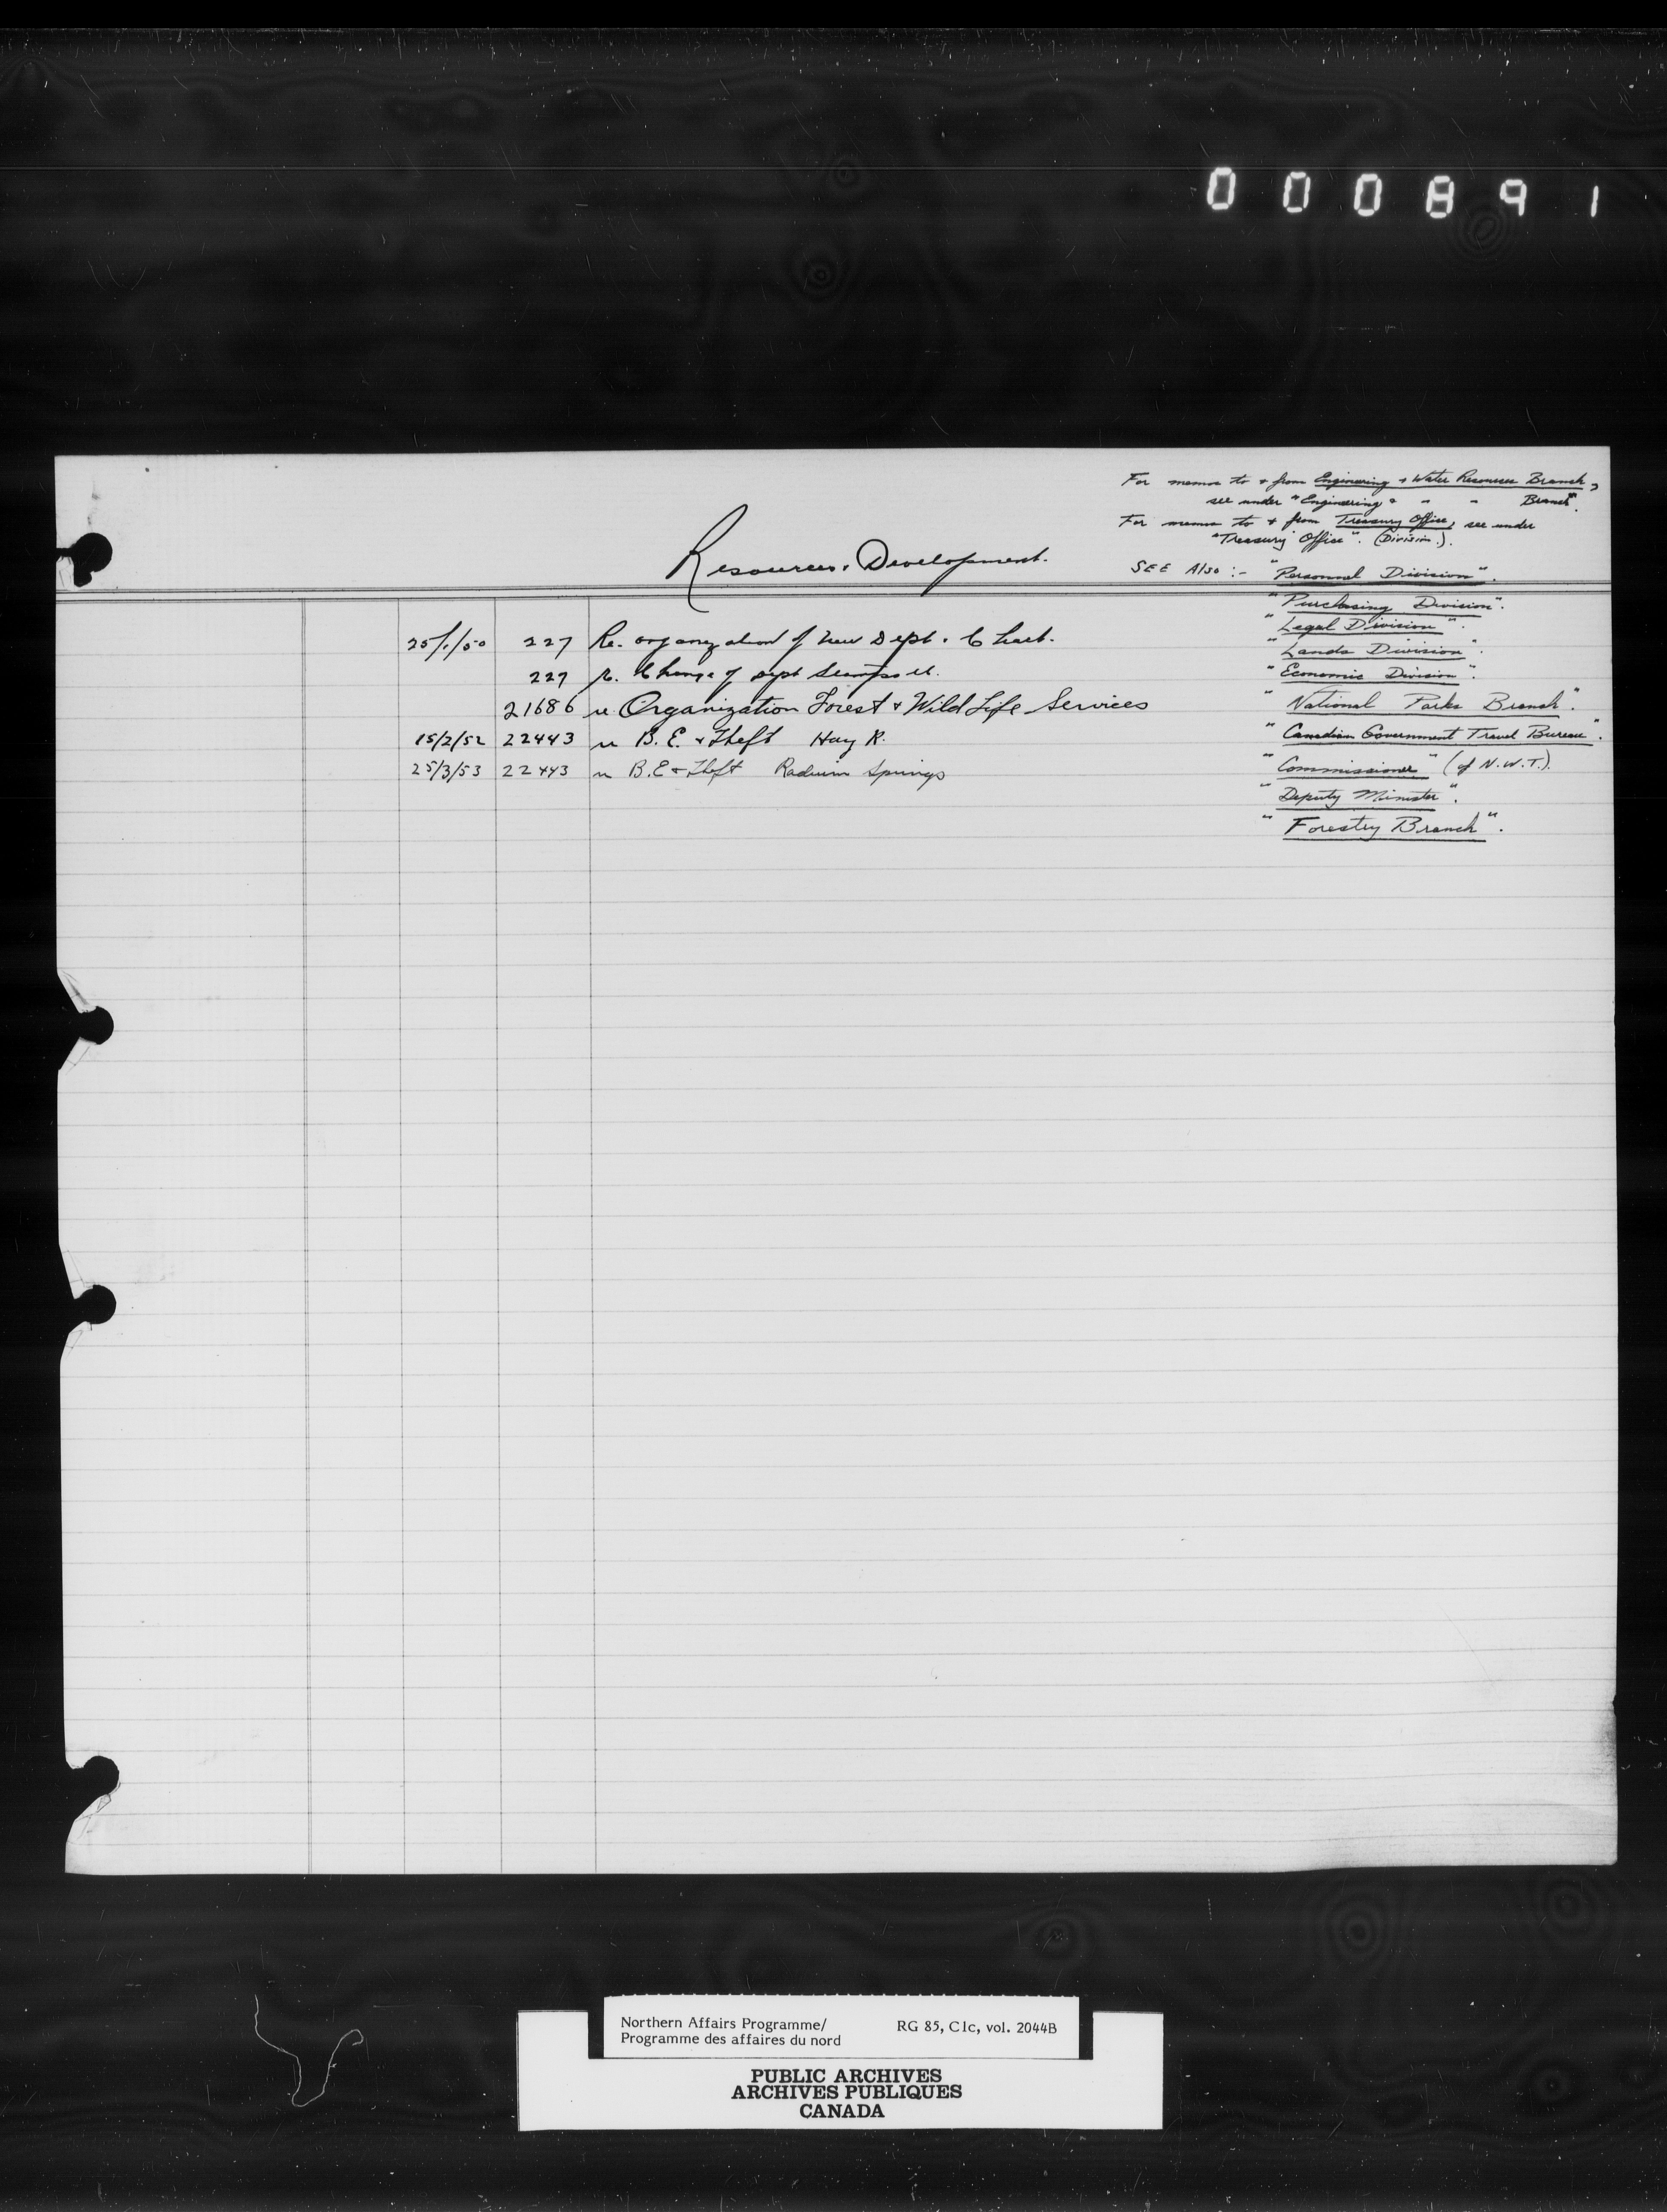 000891
For memos to & from Engineering & Water Resources Branch,
see under "Engineering & " " Branch".
For memos to & from Treasury Office, see under
"Treasury Office". (Division.).
Resources & Development.
SEE Also :- "Personnel Division".
"Purchasing Division".
"Legal Division".
"Lands Division".
"Economic Division".
"National Parks Branch".
"Canadian Government Travel Bureau".
"Commissioner" (of N.W.T.).
"Deputy Minister".
"Forestry Branch".
25/1/50 227 Re. organization of new Dept. Chart.
227 re. Change of Dept Stamps
21686 re Organization Forest & Wild Life Services
15/2/52 22443 re B. E. & Theft Hay R.
25/3/53 22443 re B.E & Theft Radium Springs
Northern Affairs Programme/
Programme des affaires du nord
RG 85, C1c, vol. 2044B
PUBLIC ARCHIVES
ARCHIVES PUBLIQUES
CANADA